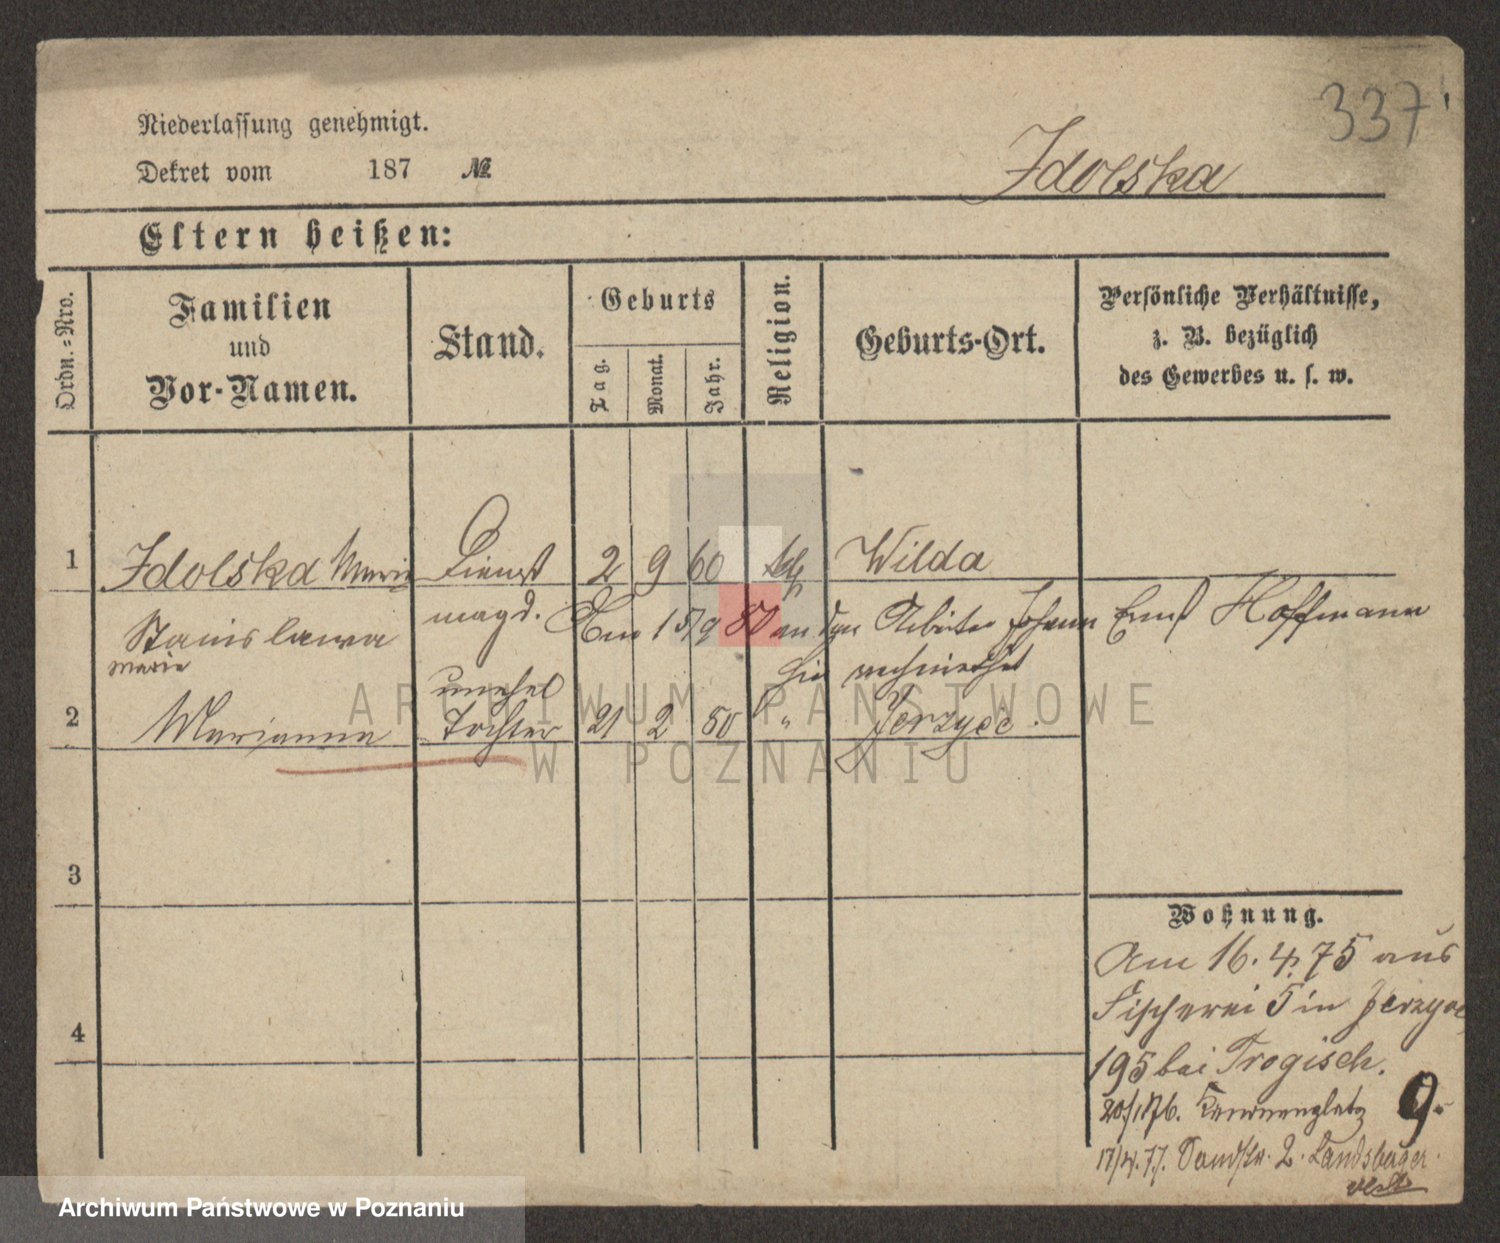 337
Niederlassung genehmigt.
Dekret vom 187 №
Zdolska
Eltern heißen:
Ordn.=Nro.
Familien
und
Vor-Namen.
Stand.
Geburts
Tag.
Monat.
Jahr.
Religion.
Geburts-Ort.
Persönliche Verhältnisse,
z. B. bezüglich
des Gewerbes u. s. w.
1 Zdolska Marie Dienst 2 9 60 kth Wilda
magd. Am 15/9 80 an den Arbeiter Johann Ernst Hoffmann
Stanislawa
Marie hier verheirathet
unehel
2 Marianna Tochter 21 2 80 " Jerzyce.
3
4
Wohnung.
Am 16.4.75 aus
Fischerei 5 in Jerzyce
195 bei Trogisch.
20/1 76. Kanonenplatz 9.
17/4.77. Sandstr. 2. Landsberger.
ARCHIWUM PAŃSTWOWE
W POZNANIU
Archiwum Państwowe w Poznaniu